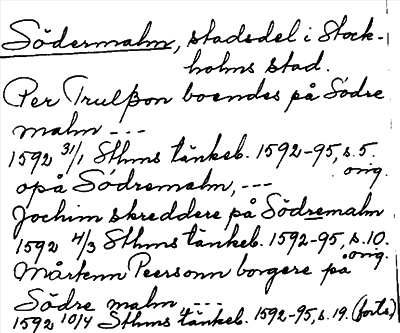 Södermalm, stadsdel i Stock-
holms stad.
Per Trulßon boendes på Södre
malm ---
1592 31/1 Sthms tänkeb. 1592-95, s. 5.
orig.
opå Södremalm, ---
Jochim skreddere på Södremalm
1592 4/3 Sthms tänkeb. 1592-95, s. 10.
orig.
Mårtenn Peersonn borgere på
Södre malm ---
1592 10/4 Sthms tänkeb. 1592-95, s. 19. (forts)